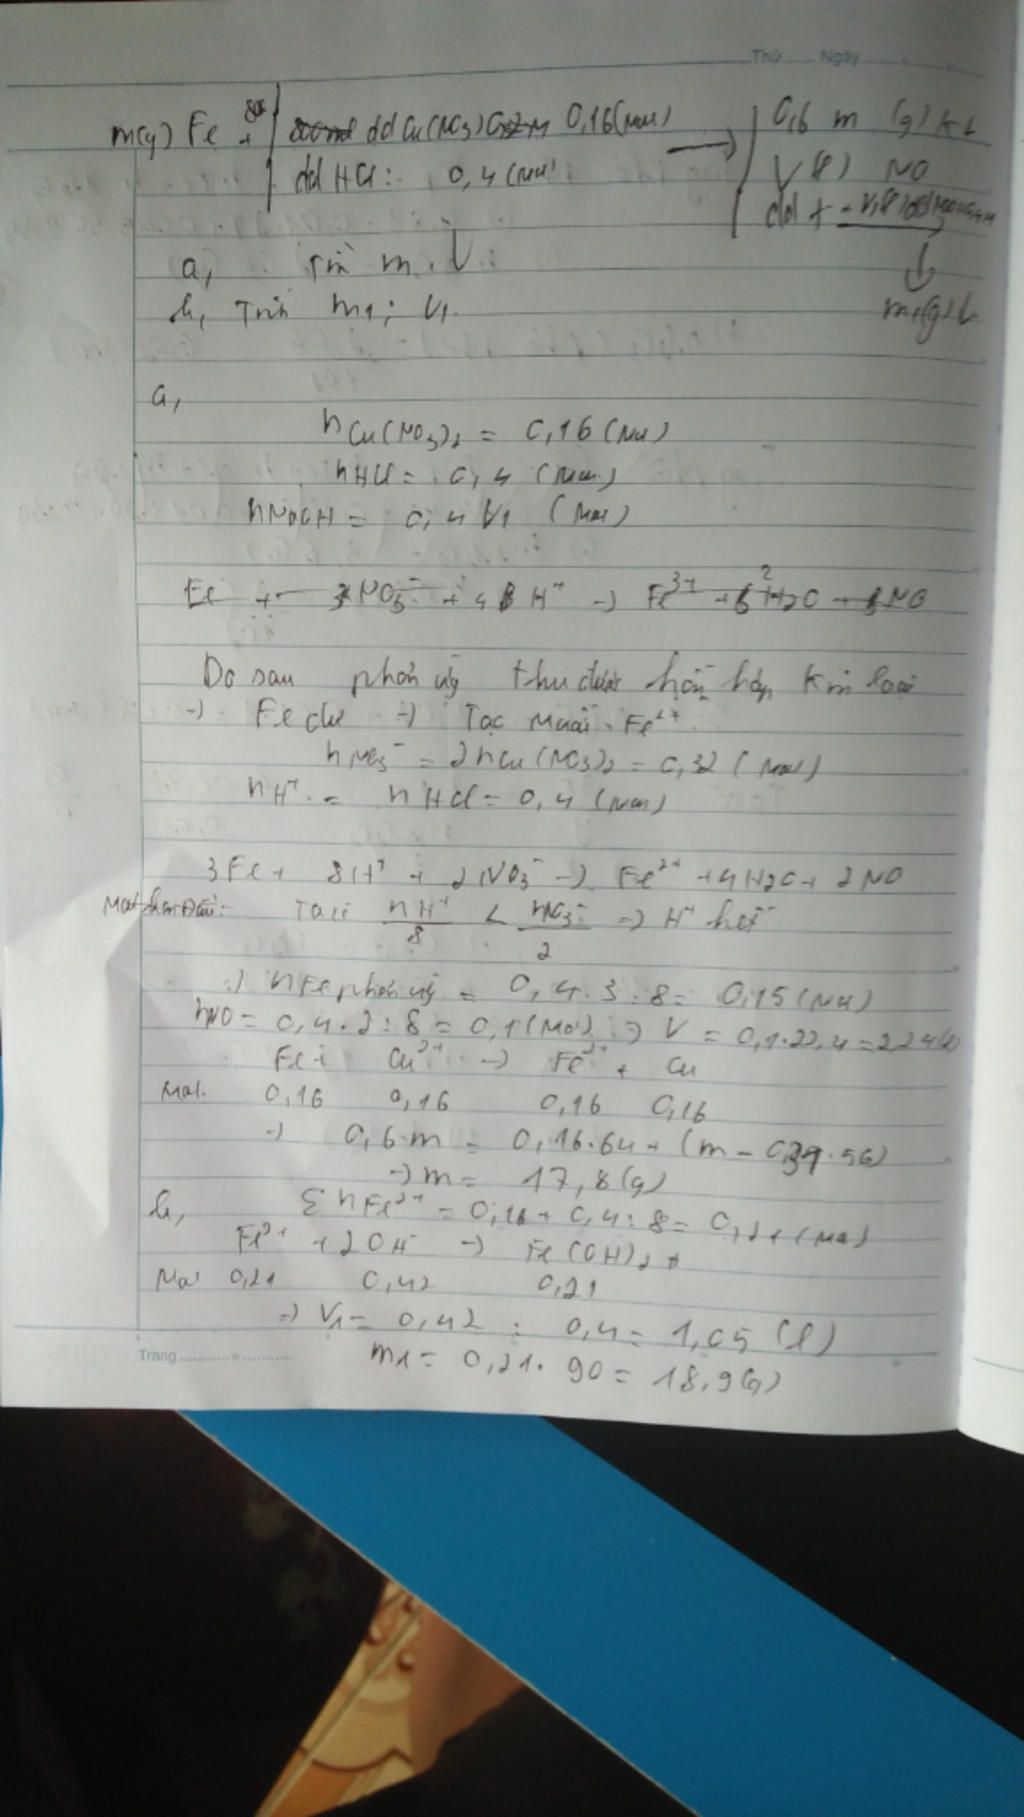 Thứ ..... Ngày
m(g) Fe + | dd Cu(NO3) 0,16 (mol) → | 0,6 m (g) KL
dd HCl : 0,4 (mol) V(l) NO
dd +
a, Tìm m, V
m1(g)↓
b, Tính m1; V1
a,
nCu(NO3)2 = 0,16 (mol)
nHCl = 0,4 (mol)
nNaOH = 0,4 V1 (mol)
Fe + NO3- + 4 H+ → Fe3+ + 2 H2O + NO
Do sau phản ứng thu được hỗn hợp kim loại
→ Fe dư → Tạo muối Fe2+
nNO3- = 2nCu(NO3)2 = 0,32 (mol)
nH+ = nHCl = 0,4 (mol)
3Fe + 8H+ + 2NO3- → Fe2+ + 4H2O + 2NO
Mol ban đầu: Ta có nH+/8 < nNO3-/2 => H+ hết
→ nFe phản ứng = 0,4.3:8 = 0,15 (mol)
nNO = 0,4.2:8 = 0,1 (mol) → V = 0,1.22,4 = 2,24(l)
Fe + Cu2+ → Fe2+ + Cu
Mol. 0,16 0,16 0,16 0,16
→ 0,6.m = 0,16.64 + (m - 0,31.56)
→ m = 17,8 (g)
b, Σ nFe2+ = 0,16 + 0,4:8 = 0,21 (mol)
Fe2+ + 2OH- → Fe(OH)2
Mol 0,21 0,42 0,21
=> V1 = 0,42 : 0,4 = 1,05 (l)
Trang
m1 = 0,21.90 = 18,9 (g)